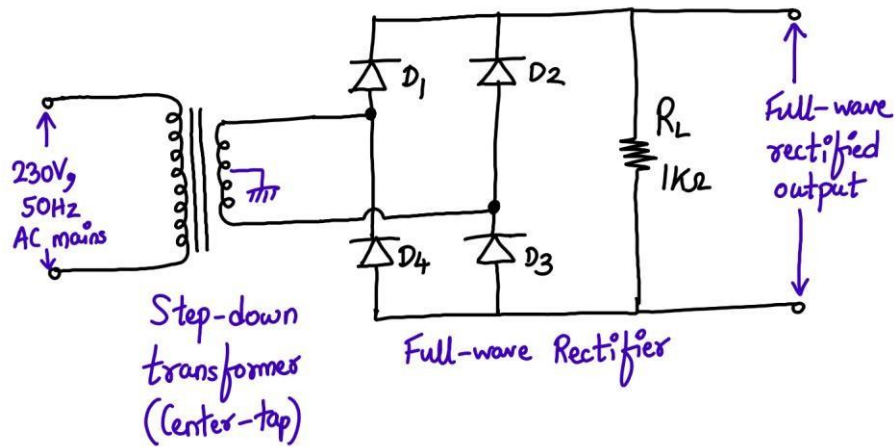 230V,
50Hz
AC mains
Step-down
transformer
(Center-tap)
D1
D2
D4
D3
Full-wave Rectifier
RL
1KΩ
Full-wave
rectified
output